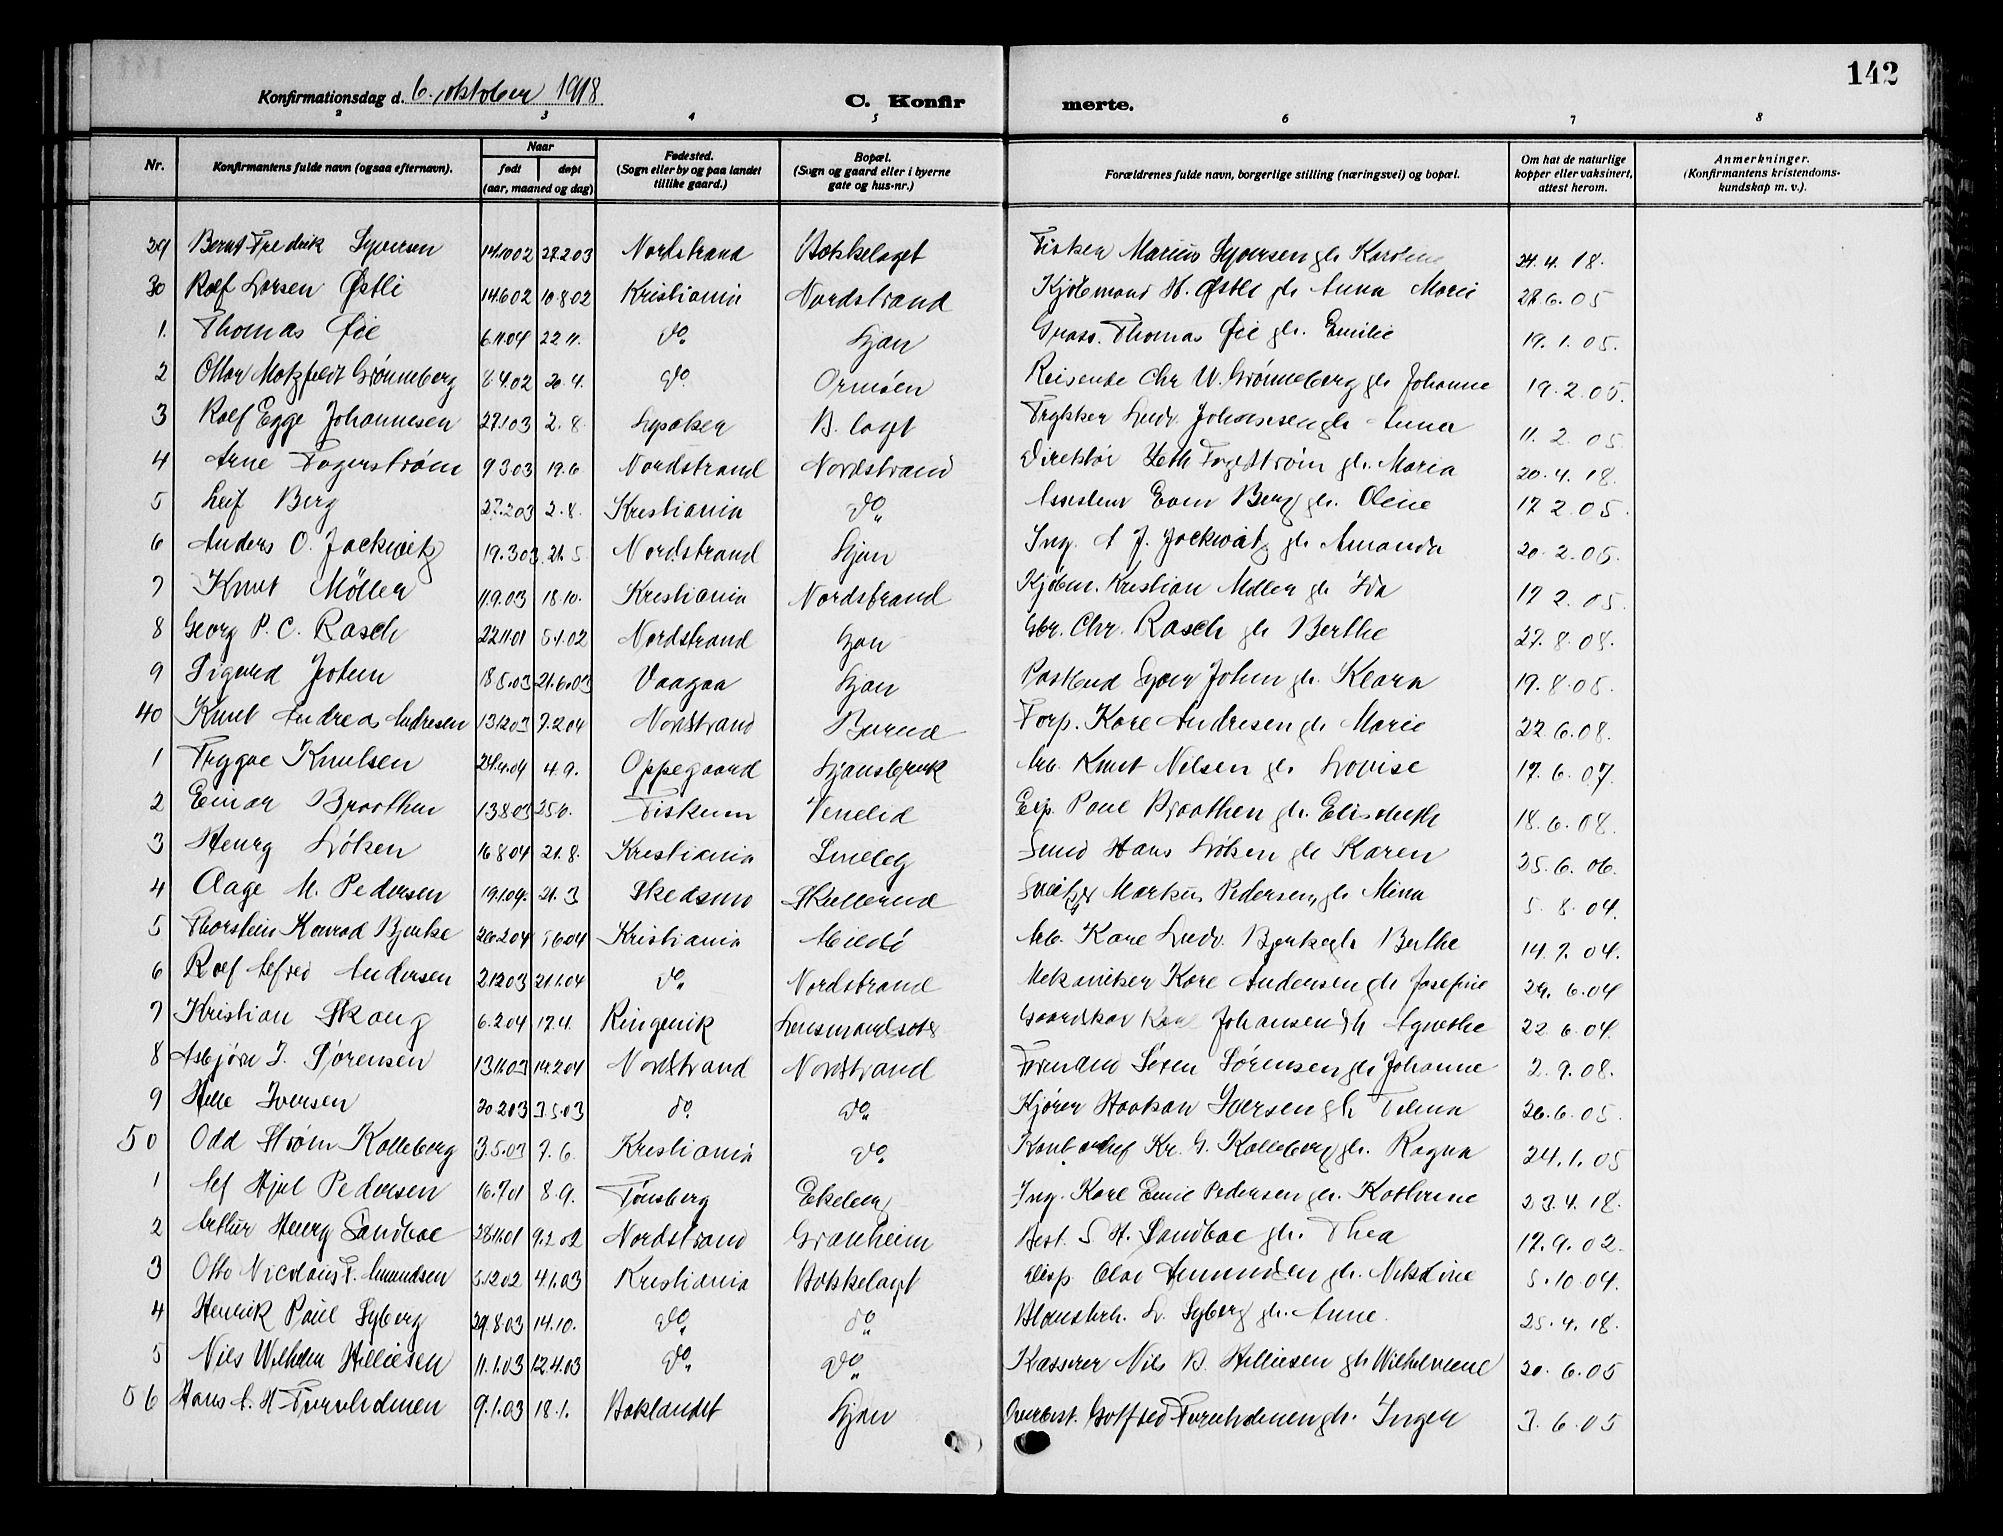 142
Konfirmationsdag d. 6. oktober 1918
C. Konfir merte.
2 3 4 5 6 7 8
Nr. Konfirmantens fulde navn (ogsaa efternavn). Naar født døpt (aar, maaned og dag) Fødested. (Sogn eller by og paa landet tillike gaard.) Bopæl. (Sogn og gaard eller i byerne gate og hus-nr.) Forældrenes fulde navn, borgerlige stilling (næringsvei) og bopæl. Om hat de naturlige kopper eller vaksinert, attest herom. Anmerkninger. (Konfirmantens kristendoms-kundskap m. v.).
29 Bernt Fredrik Syversen 14.10.02 22.2.03 Nordstrand Bekkelaget Fisker Marius Syversen gh. 24.4.18.
30 Rolf Larsen Østli 14.6.02 10.8.02 Kristiania Nordstrand Kjøbmand H. Østli gh Anna Marie 6.05
1. Thomas Øie 6.11.04 22 11. do Ljan Gross. Thomas Øie gh. Emilie 19.1.05.
2 Ottar Motzfeldt Grønneberg 8.4.02 20.4. do Ormøen Reisende Chr W. Grønneberg gh Johanne 19.2.05.
3 Rolf Egge Johannesen 27.1.03 2.8. Lysaker B. laget Trykker Ludv. Johannesen gh Anna 11.2.05
4 Arne Fagerstrøm 9.3.03 19.6 Nordstrand Nordstrand Direktør Fagerstrøm gh. Maria 20.4.18.
5 Leif Berg 27.2.03 2.8. Kristiania do Berg gh. Oline 17 2.05.
6 Anders O. Jackwitz 19.3.03 21.5 Nordstrand Ljan Ing. A J. Jackwitz gh Amanda 20.2.05.
7 Knut Möller 11.9.03 18.10. Kristiania Nordstrand Kjøbm. Kristian Möller gh Ida 17 2.05.
8 Georg P. C. Rasch 22.11.01 5.1.02 Nordstrand Ljan Chr. Rasch gh Berthe 27.8.08.
9 Sigurd Jotun 18.5.03 21.6.03 Vaagaa Ljan Postbud gh. Klara 19.8.08.
40 Knut Andreas Andresen 13.12.03 7.2.04 Nordstrand Karl Andresen gh Marie 22.6.08.
1 Trygve Knutsen 4.9. Oppegaard Ljansbruk Arb. Knut Nilsen gh Lovise 17.6.07.
2 Einar Braathen 13.8.03 Fiskum Venelid Exp. Paul Braathen gh. Elisabeth 18.6.08.
3 Henry Løken 16.8.04 21.8. Kristiania Smed Hans Løken gh Karen 25.6.06.
4 Aage M. Pedersen 21.3 Skedsmo Skullerud Markus Pedersen gh Mina 5.8.04.
5 Thorstein Konrad Bjerke 26.2.04 5.6.04 Kristiania Arb. Karl Ludv. Bjerke gh Berthe 14.7.04.
6 Rolf Alfred Andersen 2.12.03 21.1.04 do Nordstrand Mekaniker Karl Andersen gh Josefine 29.6.04
7 Kristian Skaug 6.2.04 17.4. Ringerik Johansen gh Agnethe 22 6.04.
8 Asbjørn J. Sørensen 13.11.03 14.2.04 Nordstrand Nordstrand Formand Søren Sørensen gh Johanne 2.9.08.
9 Helle Iversen 20.2.03 3.5.03 do do Kjører Haakon Iversen gh Telma 26.6.05.
50 Odd Strøm Kolleberg 3.5.03 7.6. Kristiania do Kontorchef Kr. G. Kolleberg gh. Ragna 24.1.05
1 Alf Hjal Pedersen 16.7.01 8.9. Tønsberg Ing. Karl Emil Pedersen gh. Kathrine 23.4.18.
2 Arthur Henry Sandboe 28.11.01 9.2.02 Nordstrand Granheim Best. S H. Sandboe gh. Thea 17.9.02.
3 Otto Nicolaus F. Amundsen 5.12.02 4.1.03 Kristiania Bekkelaget Olav Amundsen gh. 5.10.04.
4 Henrik Paul Syberg 29.8.03 14.10. do do L. Syberg gh. Anne. 25.4.18.
5 Nils Wilhelm Hilliesen 11.1.03 12.4.03 do do Kasserer Nils B. Hilliesen gh Wilhelmine 20.6.05
56 Hans A. H Furuholmen 9.1.03 18.1. Ljan Gotfred Furuholmen gh. Inger 3.6.05